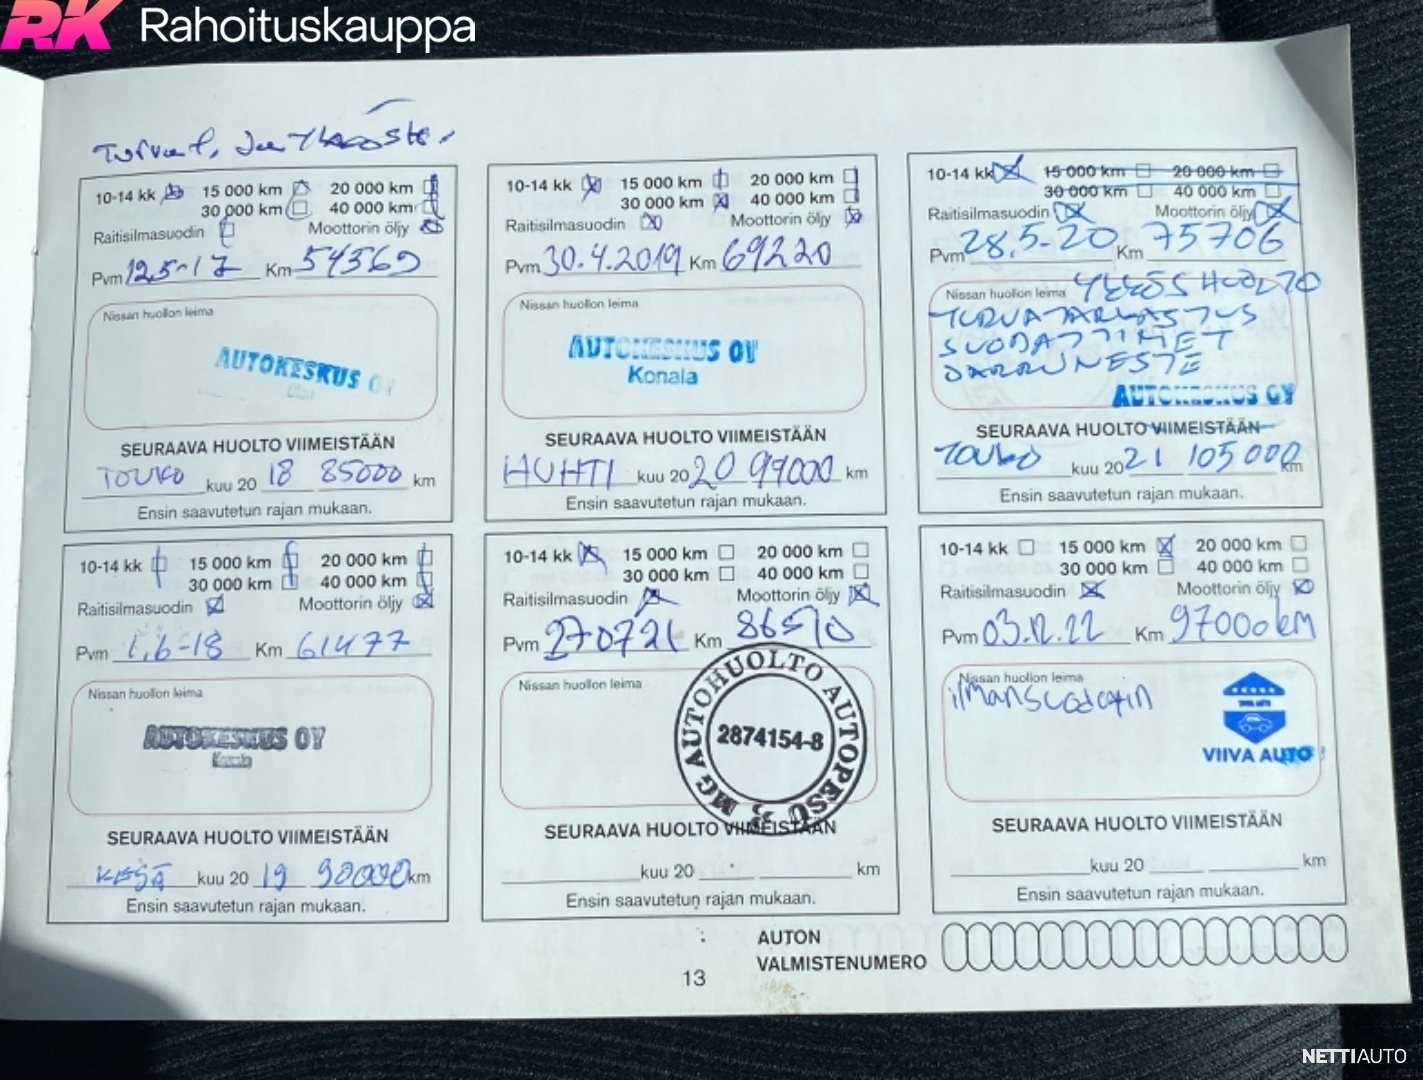 RK Rahoituskauppa
10-14 kk 15 000 km 20 000 km
30 000 km 40 000 km
Raitisilmasuodin Moottorin öljy
Pvm 12,5-17 Km 54369
Nissan huollon leima
AUTOKESKUS OY
SEURAAVA HUOLTO VIIMEISTÄÄN
TOUKO kuu 20 18 85000 km
Ensin saavutetun rajan mukaan.
10-14 kk 15 000 km 20 000 km
30 000 km 40 000 km
Raitisilmasuodin Moottorin öljy
Pvm 30.4.2019 Km 69220
Nissan huollon leima
AUTOKESKUS OY
Konala
SEURAAVA HUOLTO VIIMEISTÄÄN
HUHTI kuu 20 20 99000 km
Ensin saavutetun rajan mukaan.
10-14 kk 15 000 km 20 000 km
30 000 km 40 000 km
Raitisilmasuodin Moottorin öljy
Pvm 28,5-20 Km 75706
Nissan huollon leima YLEOS HUOLTO
TURVATARKASTUS
SUODATTIMET
JARRUNESTE
AUTOKESKUS OY
SEURAAVA HUOLTO VIIMEISTÄÄN
TOUKO kuu 20 21 105 000 km
Ensin saavutetun rajan mukaan.
10-14 kk 15 000 km 20 000 km
30 000 km 40 000 km
Raitisilmasuodin Moottorin öljy
Pvm 1,6-18 Km 61477
Nissan huollon leima
AUTOKESKUS OY
Konala
SEURAAVA HUOLTO VIIMEISTÄÄN
KESÄ kuu 20 19 90000 km
Ensin saavutetun rajan mukaan.
10-14 kk 15 000 km 20 000 km
30 000 km 40 000 km
Raitisilmasuodin Moottorin öljy
Pvm 270721 Km 86510
Nissan huollon leima
MG AUTOHUOLTO AUTOPESU
2874154-8
SEURAAVA HUOLTO VIIMEISTÄÄN
kuu 20 km
Ensin saavutetun rajan mukaan.
10-14 kk 15 000 km 20 000 km
30 000 km 40 000 km
Raitisilmasuodin Moottorin öljy
Pvm 03.12.22 Km 97000km
Nissan huollon leima
ilmansuodatin
VIIVA AUTO
SEURAAVA HUOLTO VIIMEISTÄÄN
kuu 20 km
Ensin saavutetun rajan mukaan.
AUTON
VALMISTENUMERO
13
NETTIAUTO